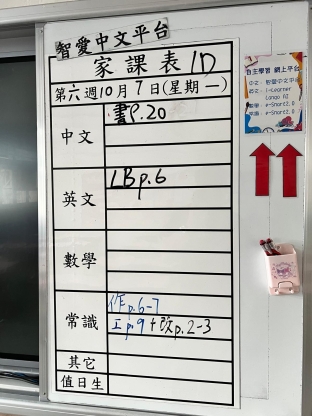 智愛中文平台
家課表 1D
第六週10月7日(星期一)
中文
書P.20
英文
LBp.6
數學
常識
作p.6-7
工p.9+改p.2-3
其它
值日生
自主學習 網上平台
中文：智愛中文平台
英文：i-Learner
Longo AI
數學：e-Smart2.0
常識：e-Smart2.0